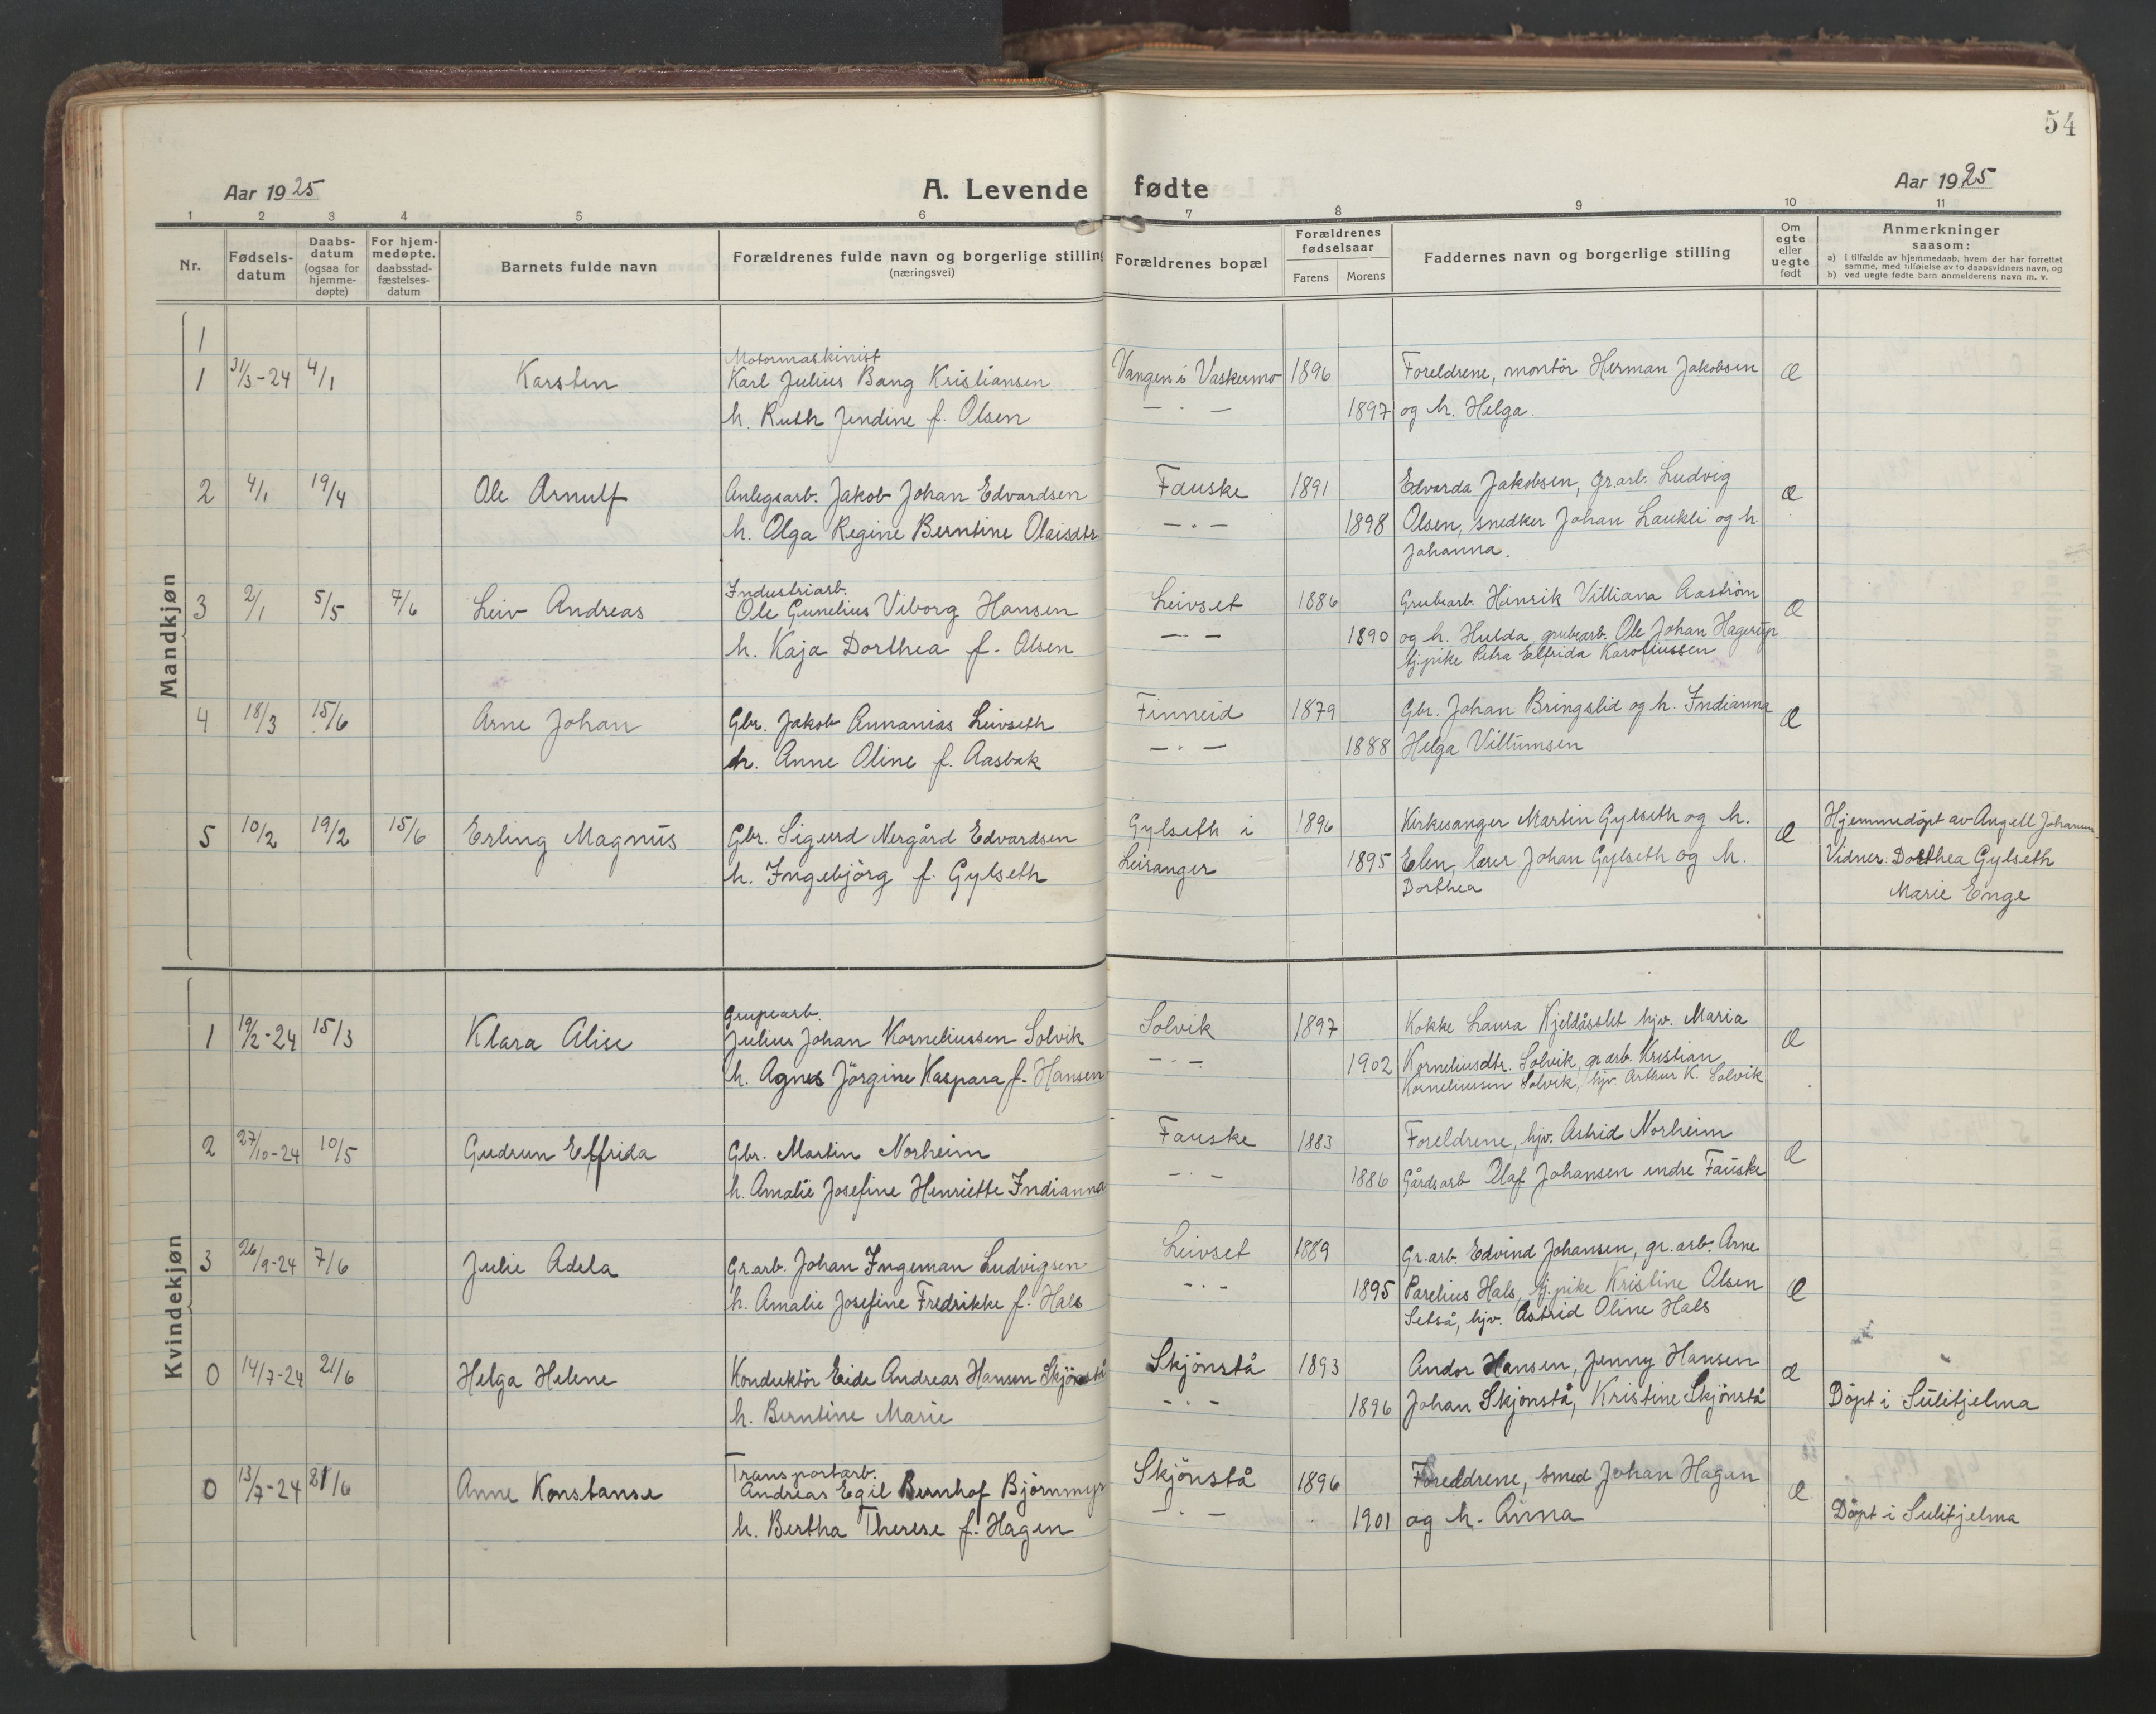 54
Aar 1925
A. Levende fødte
Aar 1925
1 2 3 4 5 6 7 8 9 10 11
Nr.
Fødsels-
datum
Daabs-
datum
(ogsaa for
hjemme-
døpte)
For hjem-
medøpte,
daabsstad-
fæstelses-
datum
Barnets fulde navn
Forældrenes fulde navn og borgerlige stilling
(næringsvei)
Forældrenes bopæl
Forældrenes
fødselsaar
Farens Morens
Faddernes navn og borgerlige stilling
Om
egte
eller
uegte
født
Anmerkninger
saasom:
a) i tilfælde av hjemmedaab, hvem der har forrettet
samme, med tilføielse av to daabsvidners navn, og
b) ved uegte fødte barn anmelderens navn m. v.
Mandkjøn
1
Motormaskinist
1 31/3-24 4/1 Karsten Karl Julius Bang Kristiansen Vangen i Vaskermo 1896 Foreldrene, montör Herman Jakobsen Æ
h. Ruth Jendine f. Olsen — . — 1897 og h. Helga.
2 4/1 19/4 Ole Arnulf Anlegsarb. Jakob Johan Edvardsen Fauske 1891 Edvarda Jakobsen, gr.arb. Ludvig Æ
h. Olga Regine Berntine Olaisdtr. — . — 1898 Olsen, snedker Johan Laukli og h.
Johanna.
Industriarb.
3 2/1 5/5 7/6 Leiv Andreas Ole Gunelius Viborg Hansen Leivset 1886 Grubearb. Henrik Villiana Aaström Æ
h. Kaja Dorthea f. Olsen — . — 1890 og h. Hulda, grubearb. Ole Johan Hagerup
tj.pike Petra Elfrida Karoliussen
4 18/3 15/6 Arne Johan Gbr. Jakob Annanias Leivseth Finneid 1879 Gbr. Johan Bringslid og h. Indianna Æ
h. Anne Oline f. Aasbak — . — 1888 Helga Villumsen
5 10/2 19/2 15/6 Erling Magnus Gbr. Sigurd Nergård Edvardsen Gylseth i 1896 Kirkesanger Martin Gylseth og h. Æ Hjemmedöpt av Angell Johansen.
h. Ingebjörg f. Gylseth Leiranger 1895 Elen, lærer Johan Gylseth og h. Vidner: Dorthea Gylseth
Dorthea Marie Enge
Kvindekjøn
Grupearb.
1 19/2-24 15/3 Klara Alise Julius Johan Korneliussen Solvik Solvik 1897 Kokke Laura Kjeldåsslet hjv. Maria Æ
h. Agnes Jörgine Kaspara f. Hansen — . — 1902 Korneliusdtr. Solvik, gr.arb. Kristian
Korneliussen Solvik, hjv. Arthur K. Solvik
2 27/10-24 10/5 Gudrun Elfrida Gbr. Martin Norheim Fauske 1883 Foreldrene, hjv. Astrid Norheim Æ
h. Amalie Josefine Henriette Indianna — . — 1886 Gårdsarb Olaf Johansen indre Fauske
3 26/9-24 7/6 Julie Adela Gr.arb. Johan Ingeman Ludvigsen Leivset 1889 Gr.arb. Edvind Johansen, gr.arb. Arne
h. Amalie Josefine Fredrikke f. Hals — . — 1895 Parelius Hals, tj.pike Kristine Olsen Æ
Setså, hjv. Astrid Oline Hals
0 14/7-24 21/6 Helga Helene Konduktör Eide Andreas Hansen Skjönstå Skjönstå 1893 Andor Hansen, Jenny Hansen Æ
h. Berntine Marie — . — 1896 Johan Skjönstå, Kristine Skjönstå Döpt i Sulitjelma
Transportarb.
0 13/7-24 21/6 Anne Konstanse Andreas Egil Bernhof Björnmyr Skjönstå 1896 Foreldrene, smed Johan Hagen Æ
h. Bertha Therese f. Hagen — . — 1901 og h. Anna Döpt i Sulitjelma